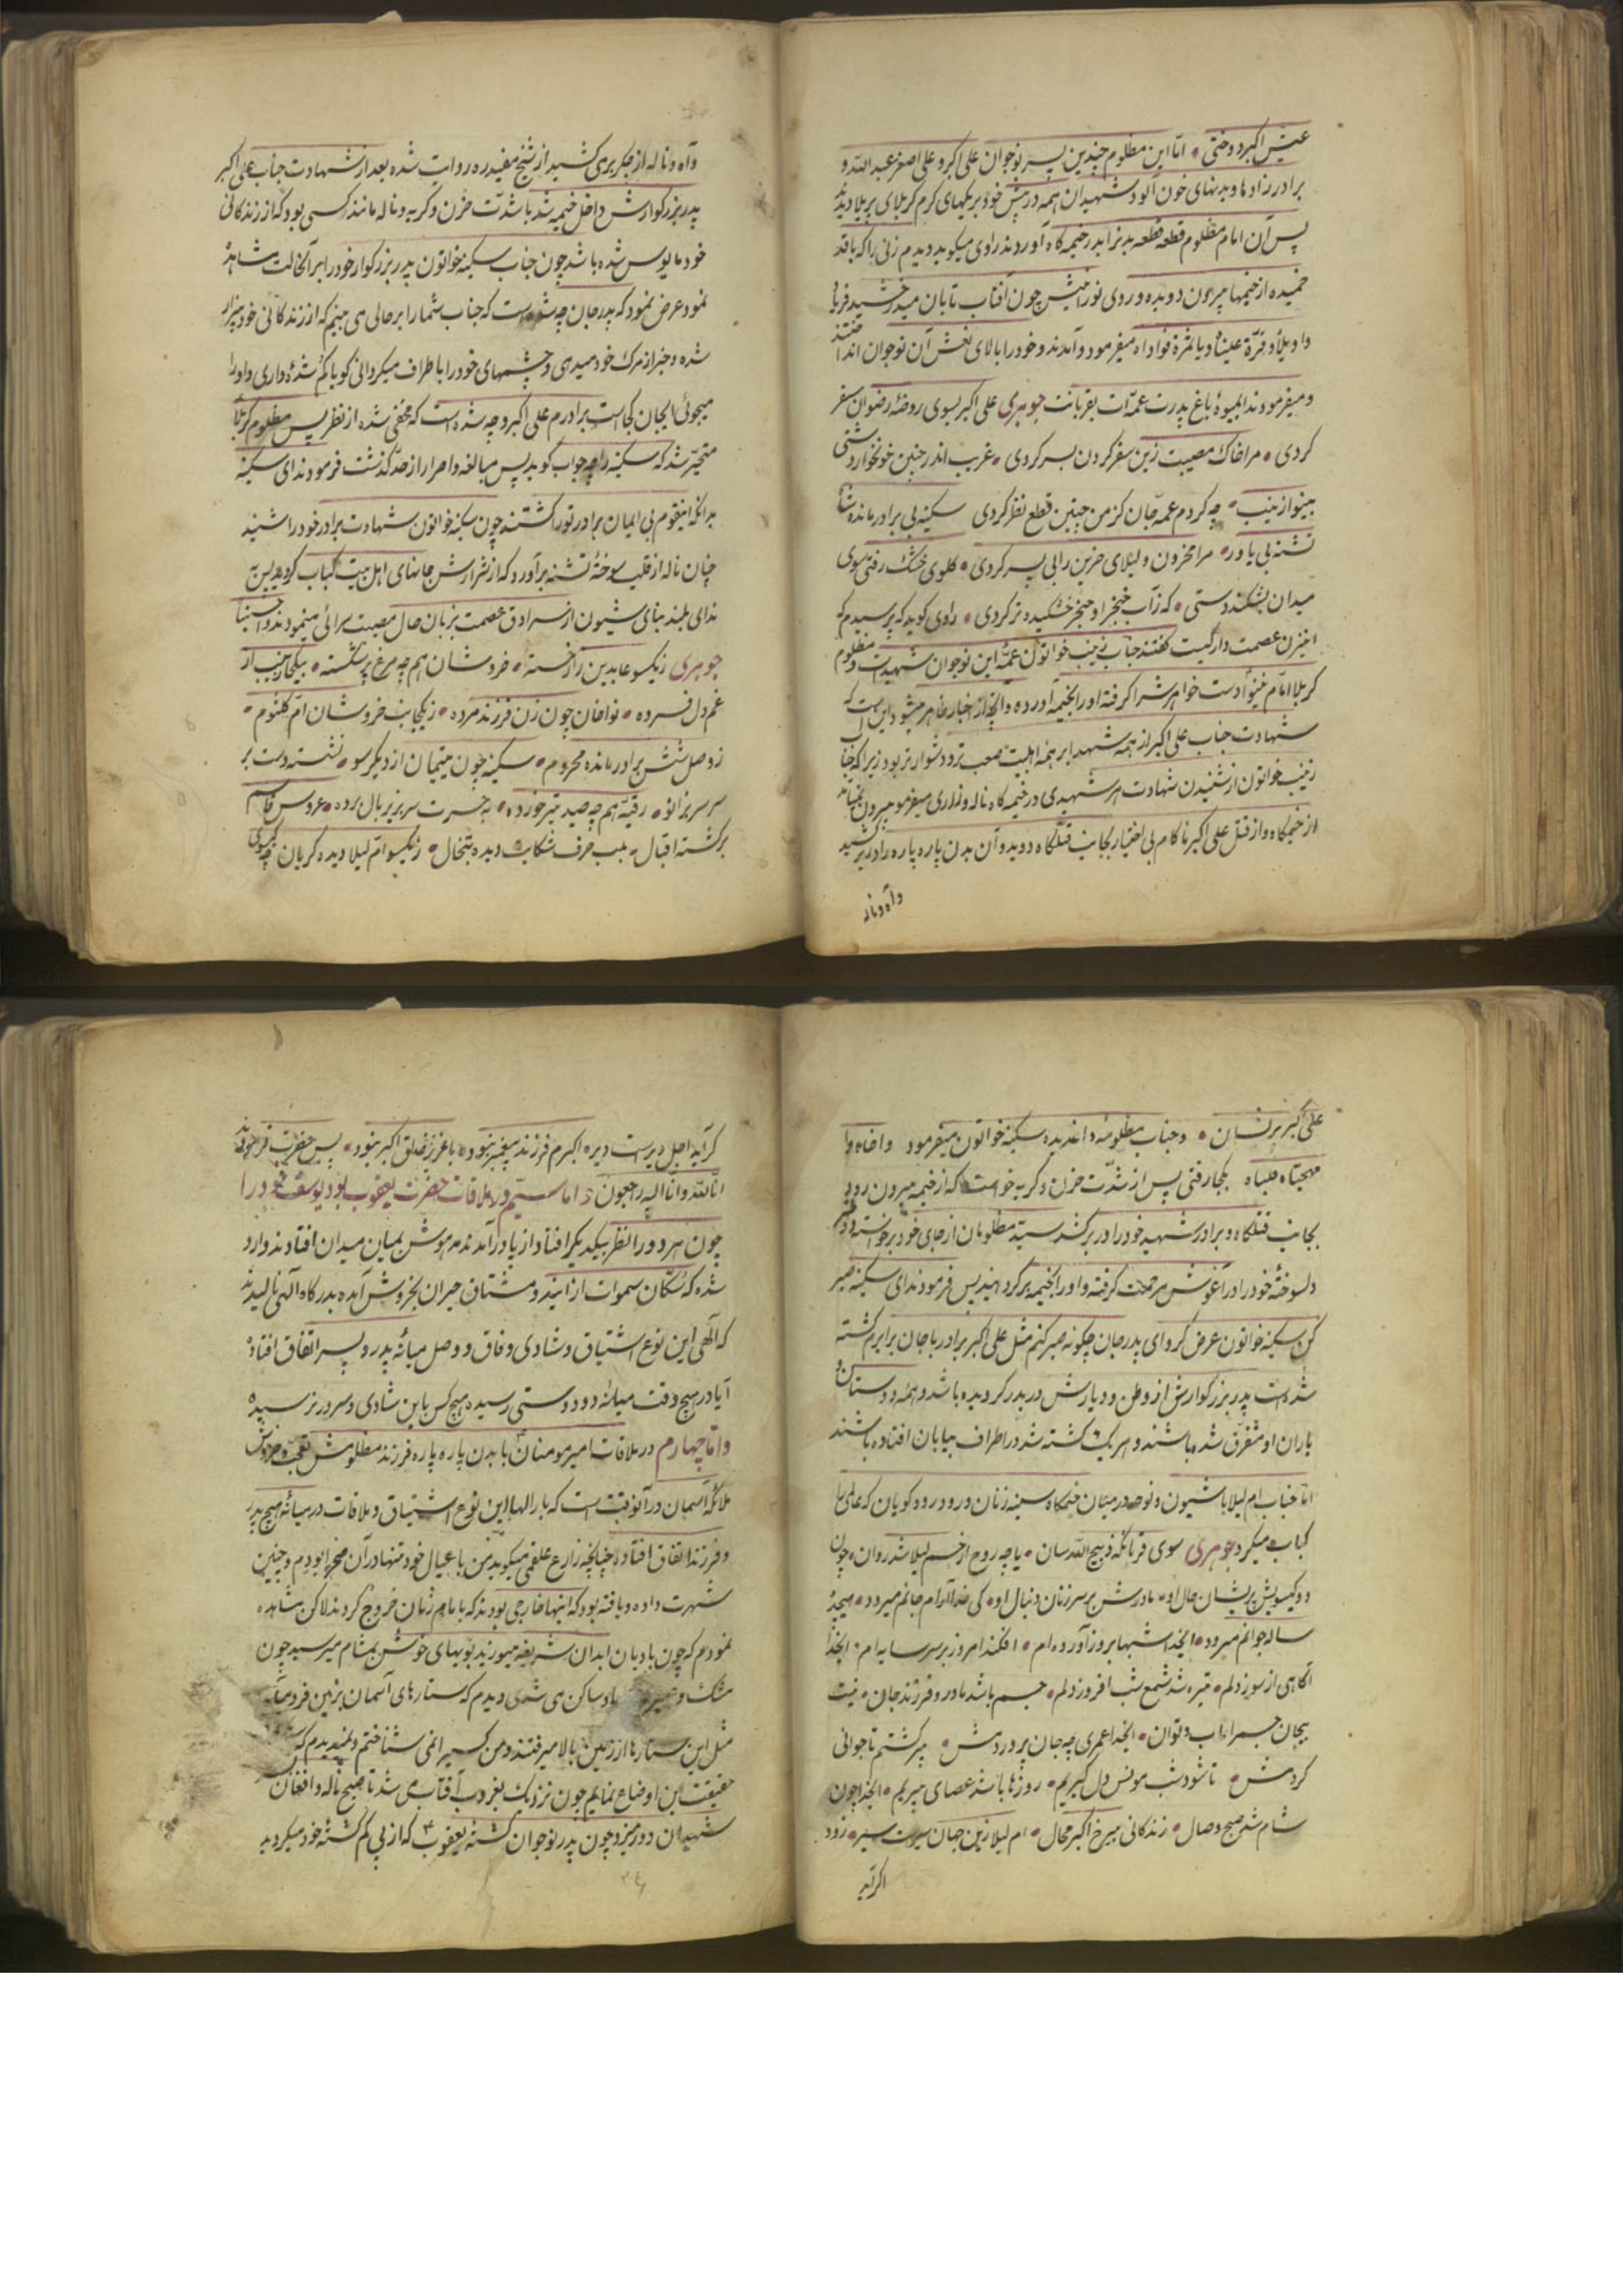 عیش اکبر دوختی • اما این مظلوم چندین پسر نوجوان علی اکبر و علی اصغر عبدالله و
برادرزادها و بدنهای خون آلود شهیدان همه در پیش خود بریکهای گرم کربلای پربلا دیده
پس آن امام مظلوم قطعه قطعه بدنرا بدر خیمه گاه آوردند راوی میگوید دیدم زنی را که با قد
خمیده از خیمها بیرون دویده و روی نورانیش چون آفتاب تابان میدرخشید فریاد
وا ویلاه و قرة عیناه و یا ثمرة فواداه میفرمود و آمدند و خود را بالای نعش آن نوجوان انداختند
و میفرمودند ایمیوهٔ باغ پدرت عمه‌ات بقربانت جوهری علی اکبر بسوی روضهٔ رضوان سفر
کردی • مرا خاک مصیبت زین سفر کردن بسر کردی • غریب اندر چنین خونخوار دشتی
بینوا زینب • چه کردم عمه جان کز من چنین قطع نظر کردی سکینه بی برادر مانده شاه
تشنه بی یاور • مرا محزون و لیلای حزین را بی پسر کردی • گلوی خشک رفتی سوی
میدان بشکند دستی • که زآب خنجر او حنجر خشکیده تر کردی • راوی گوید که پرسیدم که
اینزن عصمت دار کیست گفتند جناب زینب خواتون عمهٔ این نوجوان شهید است و مظلوم
کربلا امام غینوا دست خواهرش را گرفته او را بخیمه آورده و آنچه از اخبار ظاهر میشود این است که
شهادت جناب علی اکبر از همه شهدا بر همهٔ اهلبیت صعب تر و دشوارتر بود زیرا که جناب
زینب خواتون از شنیدن شهادت هر شهیدی در خیمه گاه ناله و زاری میفرمود بیرون نمیآمد
از خیمگاه و از قتل علی اکبر ناکام بی اختیار بجانب قتلگاه دوید و آن بدن پاره پاره را در بر کشید
وآه و ناله
وآه و ناله از جگر بر می کشید از شیخ مفید ره روایت شده بعد از شهادت جناب علی اکبر
پدر بزرگوارش داخل خیمه شد با شدت حزن و گریه و ناله مانند کسی بود که از زندگانی
خود مایوس شده باشد چون جناب سکینه خواتون پدر بزرگوار خود را بر آنحالت مشاهده
نمود عرض نمود که پدر جان چه شده است که جناب شما را بر حالی می بینم که از زندگانی خود بیزار
شده و خبر از مرک خود میدهی و چشمهای خود را باطراف میگردانی گویا گم شدهٔ داری و او را
میجوئی ایجان کجاست برادرم علی اکبر و چه شده است که مخفی شده از نظر پس مظلوم کربلا
متحیر شد که سکینه را چه جواب گوید پس مبالغه و اصرار از حد گذشت فرمودند ای سکینه
بدانکه اینقوم بی ایمان برادر تو را کشتند چون سکینه خواتون شهادت برادر خود را شنید
چنان ناله از قلب سوختهٔ تشنه برآورد که از شرارش جانهای اهل بیت کباب گردید پس به
ندای بلند بنای شیون از سرادق عصمت بزبان حال مصیبت سرائی مینمودند وا حسیناه
جوهری زیکسو عابدین زار خسته • خروشان همچه مرغ پر شکسته • بیکجا زینب از
غم دل فسرده • نوا خان چون زن فرزند مرده • زیکجانب خروشان ام کلثوم •
زوصل شش برادر مانده محروم • سکینه چون یتیمان از دیگر سو • نشسته دست بر
سر سر بزانو • رقیه همچه صید تیر خورده • به حسرت سر بزیر بال برده • عروس قاسم
برگشته اقبال • بلب حرف شکایت دیده تبخال • زیکسو ام لیلا دیده گریان چه گیسوی
علی اکبر پریشان • و جناب مظلومه داغدیده سکینه خواتون میفرمود وا اخاه وا
مهجتاه قلباه بکجا رفتی پس از شدت حزن و گریه خواست که از خیمه بیرون رود
بجانب قتلگاه و برادر شهید خود را در بر کشد سید مظلومان از جای خود برخواسته دختر
دلسوختهٔ خود را در آغوش مرحمت گرفته و او را بخیمه برگردانید پس فرمودند ای سکینه صبر
کن سکینه خواتون عرض کرد ای پدر جان چگونه صبر کنم مثل علی اکبر برادر با جان برابرم کشته
شده است پدر بزرگوارش از وطن و دیارش دربدر گردیده باشد و همه دوستان و
یاران او متفرق شده باشند و هر یک کشته شد در اطراف بیابان افتاده باشند
اما جناب ام لیلا با شیون و نوحه در میان خیمگاه سینه زنان و رود رود گویان که عالمی را
کباب میکرد جوهری سوی قربانگه ذبیح الله سان • یا چه روح از جسم لیلا شد روان • چون
دو گیسویش پریشان حال او • مادرش بر سر زنان دنبال او • کی خدا آرام جانم میرود • هیجده
ساله جوانم میرود • ایخدا شبها بروز آورده ام • افکند امروز بر سر سایه ام • ایخدا
آگاهی از سوز دلم • تیره شد شمع شب افروز دلم • جسم باشد مادر و فرزند جان • نیست
بیجان جسم را تاب و توان • ایخدا عمری چه جان پروردمش • پیر گشتم تا جوانی
کردمش • تا شود شب مونس دل گیریم • روزها باشد عصای پیریم • ایخدا چون
شام شد صبح وصال • زندگانی بیرخ اکبر محال • ام لیلا زین جهان سیر است سیر • زود
اگر آید
گر آید اجل دیر است دیر • اکبرم فرزند پیغمبر نبود • یا عزیز خالق اکبر نبود • پس حضرت فرمودند
انا لله و انا الیه راجعون • و اما سیم در ملاقات حضرت یعقوب بود یوسف خود را
چون هر دو را نظر بیکدیگر افتاد از پا درآمدند مدهوش بمیان میدان افتادند وارد
شده که سکان سموات از ایندو مشتاق حیران بخروش آمده بدرگاه آلهی نالیدند
که آلهی این نوع اشتیاق و شادی وفاق و وصل میانهٔ پدر و پسر اتفاق افتاده
آیا در هیچ وقت میانهٔ دو دوستی رسیده هیچ کس باین شادی و سرور نرسیده
و اما چهارم در ملاقات امیر مومنان با بدن پاره پاره فرزند مظلومش تعجب و خروش
ملائکهٔ آسمان در آنوقت است که بار الها این نوع اشتیاق و ملاقات در میانهٔ هیچ پدر
و فرزند اتفاق افتاده چنانچه زارع علقمی میگوید من با عیال خود تنها در آن صحرا بودم و چنین
شهرت داده و یافته بود که اینها خارجی بودند که با امام زمان خروج کردند لاکن مشاهده
نمودم که چون باد بان ابدان شریفه میوزید بویهای خوش بمشام میرسید چون
مشک و عنبر باد ساکن می شدی و دیدم که ستارهای آسمان بزمین فرو میآمد
مثل این ستارها از زمین بالا میرفتند و من کسیرا نمی شناختم و نمیدیدم که
حقیقت این اوضاع نمایم چون نزدیک بغروب آفتاب می شد تا صبح ناله و افغان
شهیدان دور میزد چون پدر نوجوان کشته یعقوب که از پی گم گشتهٔ خود میگردید